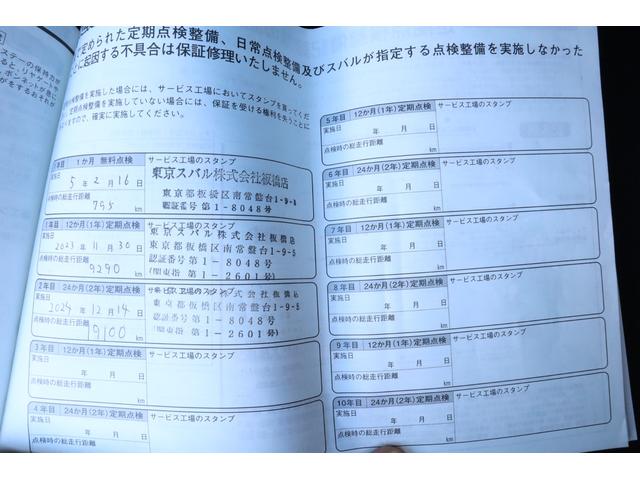 定められた定期点検整備、日常点検整備及びスバルが指定する点検整備を実施しなかった
ことに起因する不具合は保証修理いたしません。
点検整備を実施した場合には、サービス工場においてスタンプを貰ってくだ
定期点検整備を実施していない場合には、保証を受ける権利を失うことに
ますので、確実に実施してください。
1か月 無料点検
サービス工場のスタンプ
実施日
5年2月16日
点検時の総走行距離
795 km
東京スバル株式会社板橋店
東京都板橋区南常盤台1-9-5
認証番号第1-8048号
1年目 12か月(1年)定期点検
サービス工場のスタンプ
実施日
2023年11月30日
点検時の総走行距離
9290 km
東京スバル株式会社板橋店
東京都板橋区南常盤台1-9-5
認証番号第1-8048号
(関東指第1-2601号)
2年目 24か月(2年)定期点検
サービス工場のスタンプ
実施日
2024年12月14日
点検時の総走行距離
9100 km
東京スバル株式会社板橋店
東京都板橋区南常盤台1-9-5
認証番号第1-8048号
(関東指第1-2601号)
3年目 12か月(1年)定期点検
サービス工場のスタンプ
実施日
年 月 日
点検時の総走行距離
km
4年目 24か月(2年)定期点検
サービス工場のスタンプ
実施日
年 月 日
点検時の総走行距離
km
5年目 12か月(1年)定期点検
サービス工場のスタンプ
実施日
年 月 日
点検時の総走行距離
km
6年目 24か月(2年)定期点検
サービス工場のスタンプ
実施日
年 月 日
点検時の総走行距離
km
7年目 12か月(1年)定期点検
サービス工場のスタンプ
実施日
年 月 日
点検時の総走行距離
km
8年目 24か月(2年)定期点検
サービス工場のスタンプ
実施日
年 月 日
点検時の総走行距離
km
9年目 12か月(1年)定期点検
サービス工場のスタンプ
実施日
年 月 日
点検時の総走行距離
km
10年目 24か月(2年)定期点検
サービス工場のスタンプ
実施日
年 月 日
点検時の総走行距離
km